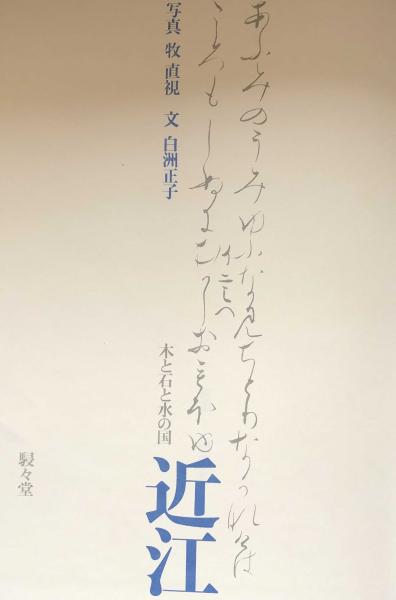 あふみのうみゆふなみちとりなかなけは
こゝろもしぬにむかしおもほゆ
写真 牧 直視 文 白洲正子
木と石と水の国
近江
駸々堂